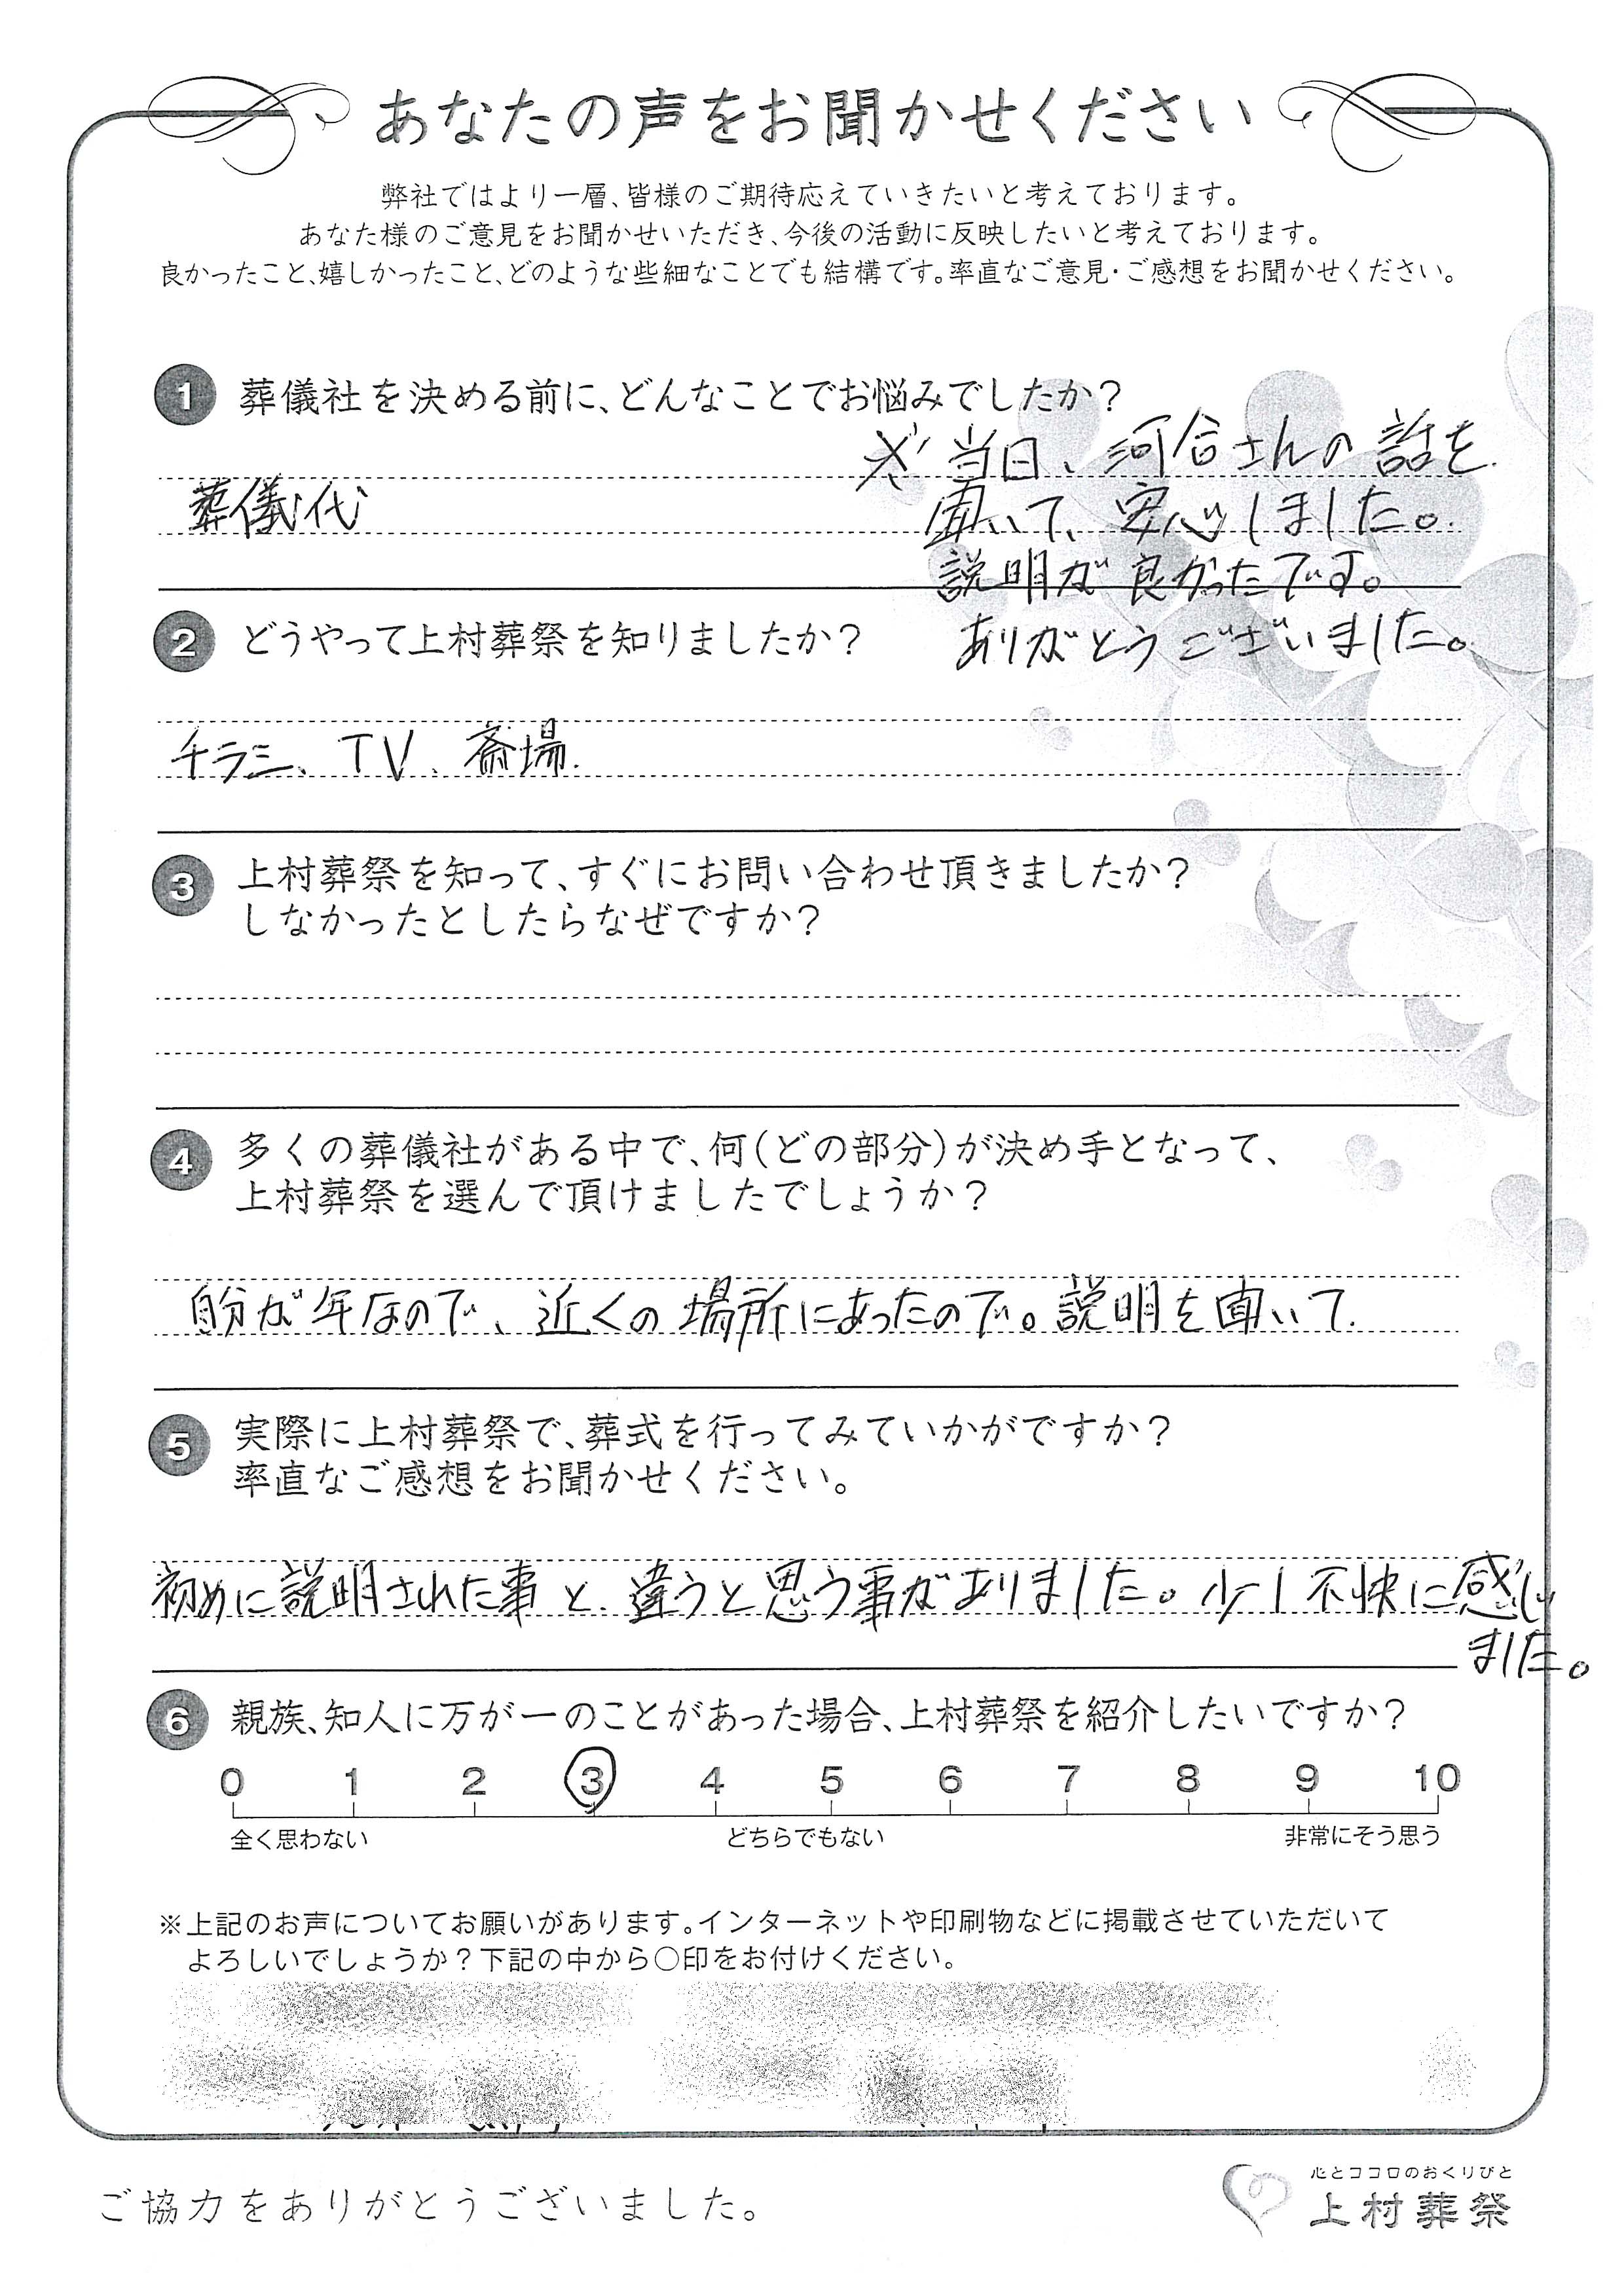 あなたの声をお聞かせください
弊社ではより一層、皆様のご期待応えていきたいと考えております。
あなた様のご意見をお聞かせいただき、今後の活動に反映したいと考えております。
良かったこと、嬉しかったこと、どのような些細なことでも結構です。率直なご意見・ご感想をお聞かせください。
1 葬儀社を決める前に、どんなことでお悩みでしたか?
当日、河合さんの話を
聞いて、安心しました。
葬儀代
説明が良かったです。
ありがとうございました。
2 どうやって上村葬祭を知りましたか?
チラシ、TV、斎場.
3 上村葬祭を知って、すぐにお問い合わせ頂きましたか?
しなかったとしたらなぜですか?
4 多くの葬儀社がある中で、何(どの部分)が決め手となって、
上村葬祭を選んで頂けましたでしょうか?
自分が年なので、近くの場所にあったので。説明を聞いて.
5 実際に上村葬祭で、葬式を行ってみていかがですか?
率直なご感想をお聞かせください。
初めに説明された事と、違うと思う事がありました。少し不快に感じ
ました。
6 親族、知人に万が一のことがあった場合、上村葬祭を紹介したいですか?
0 1 2 3 4 5 6 7 8 9 10
全く思わない どちらでもない 非常にそう思う
※上記のお声についてお願いがあります。インターネットや印刷物などに掲載させていただいて
よろしいでしょうか?下記の中から○印をお付けください。
ご協力をありがとうございました。
心とココロのおくりびと
上村葬祭